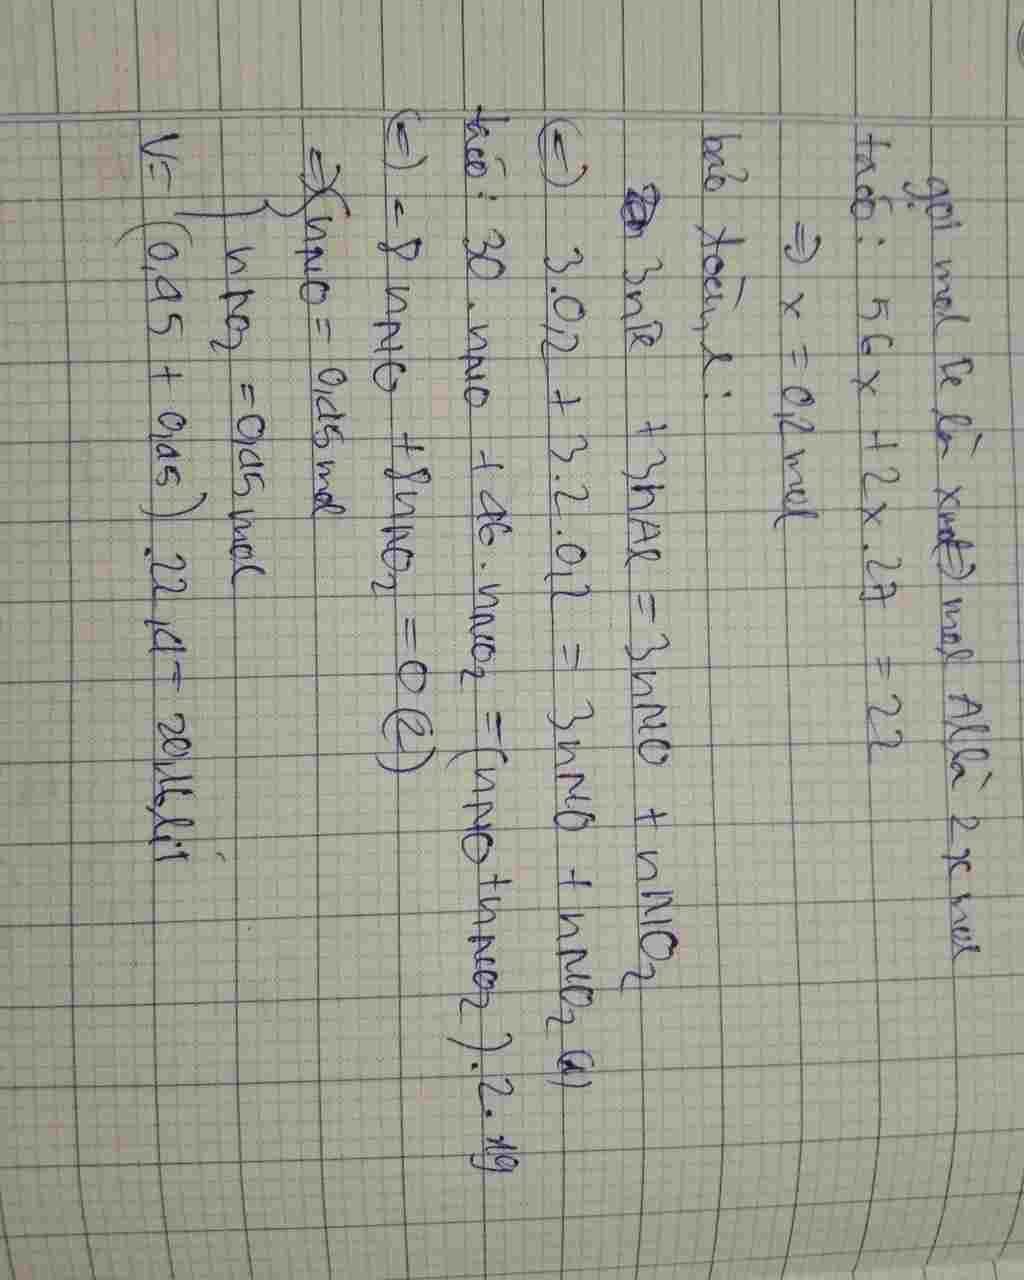 gọi mol Fe là x mol mol Al là 2x mol
ta có: 56x + 2x.27 = 22
=> x = 0,2 mol
bảo toàn e:
3nFe + 3nAl = 3nNO + nNO2
(=) 3.0,2 + 3.2.0,2 = 3nNO + nNO2 (1)
ta có: 30.nNO + 46.nNO2 = (nNO + nNO2).2.19
(=) -8nNO + 8nNO2 = 0 (2)
=> { nNO = 0,45 mol
nNO2 = 0,45 mol
V = (0,45 + 0,45).22,4 = 20,16 lít